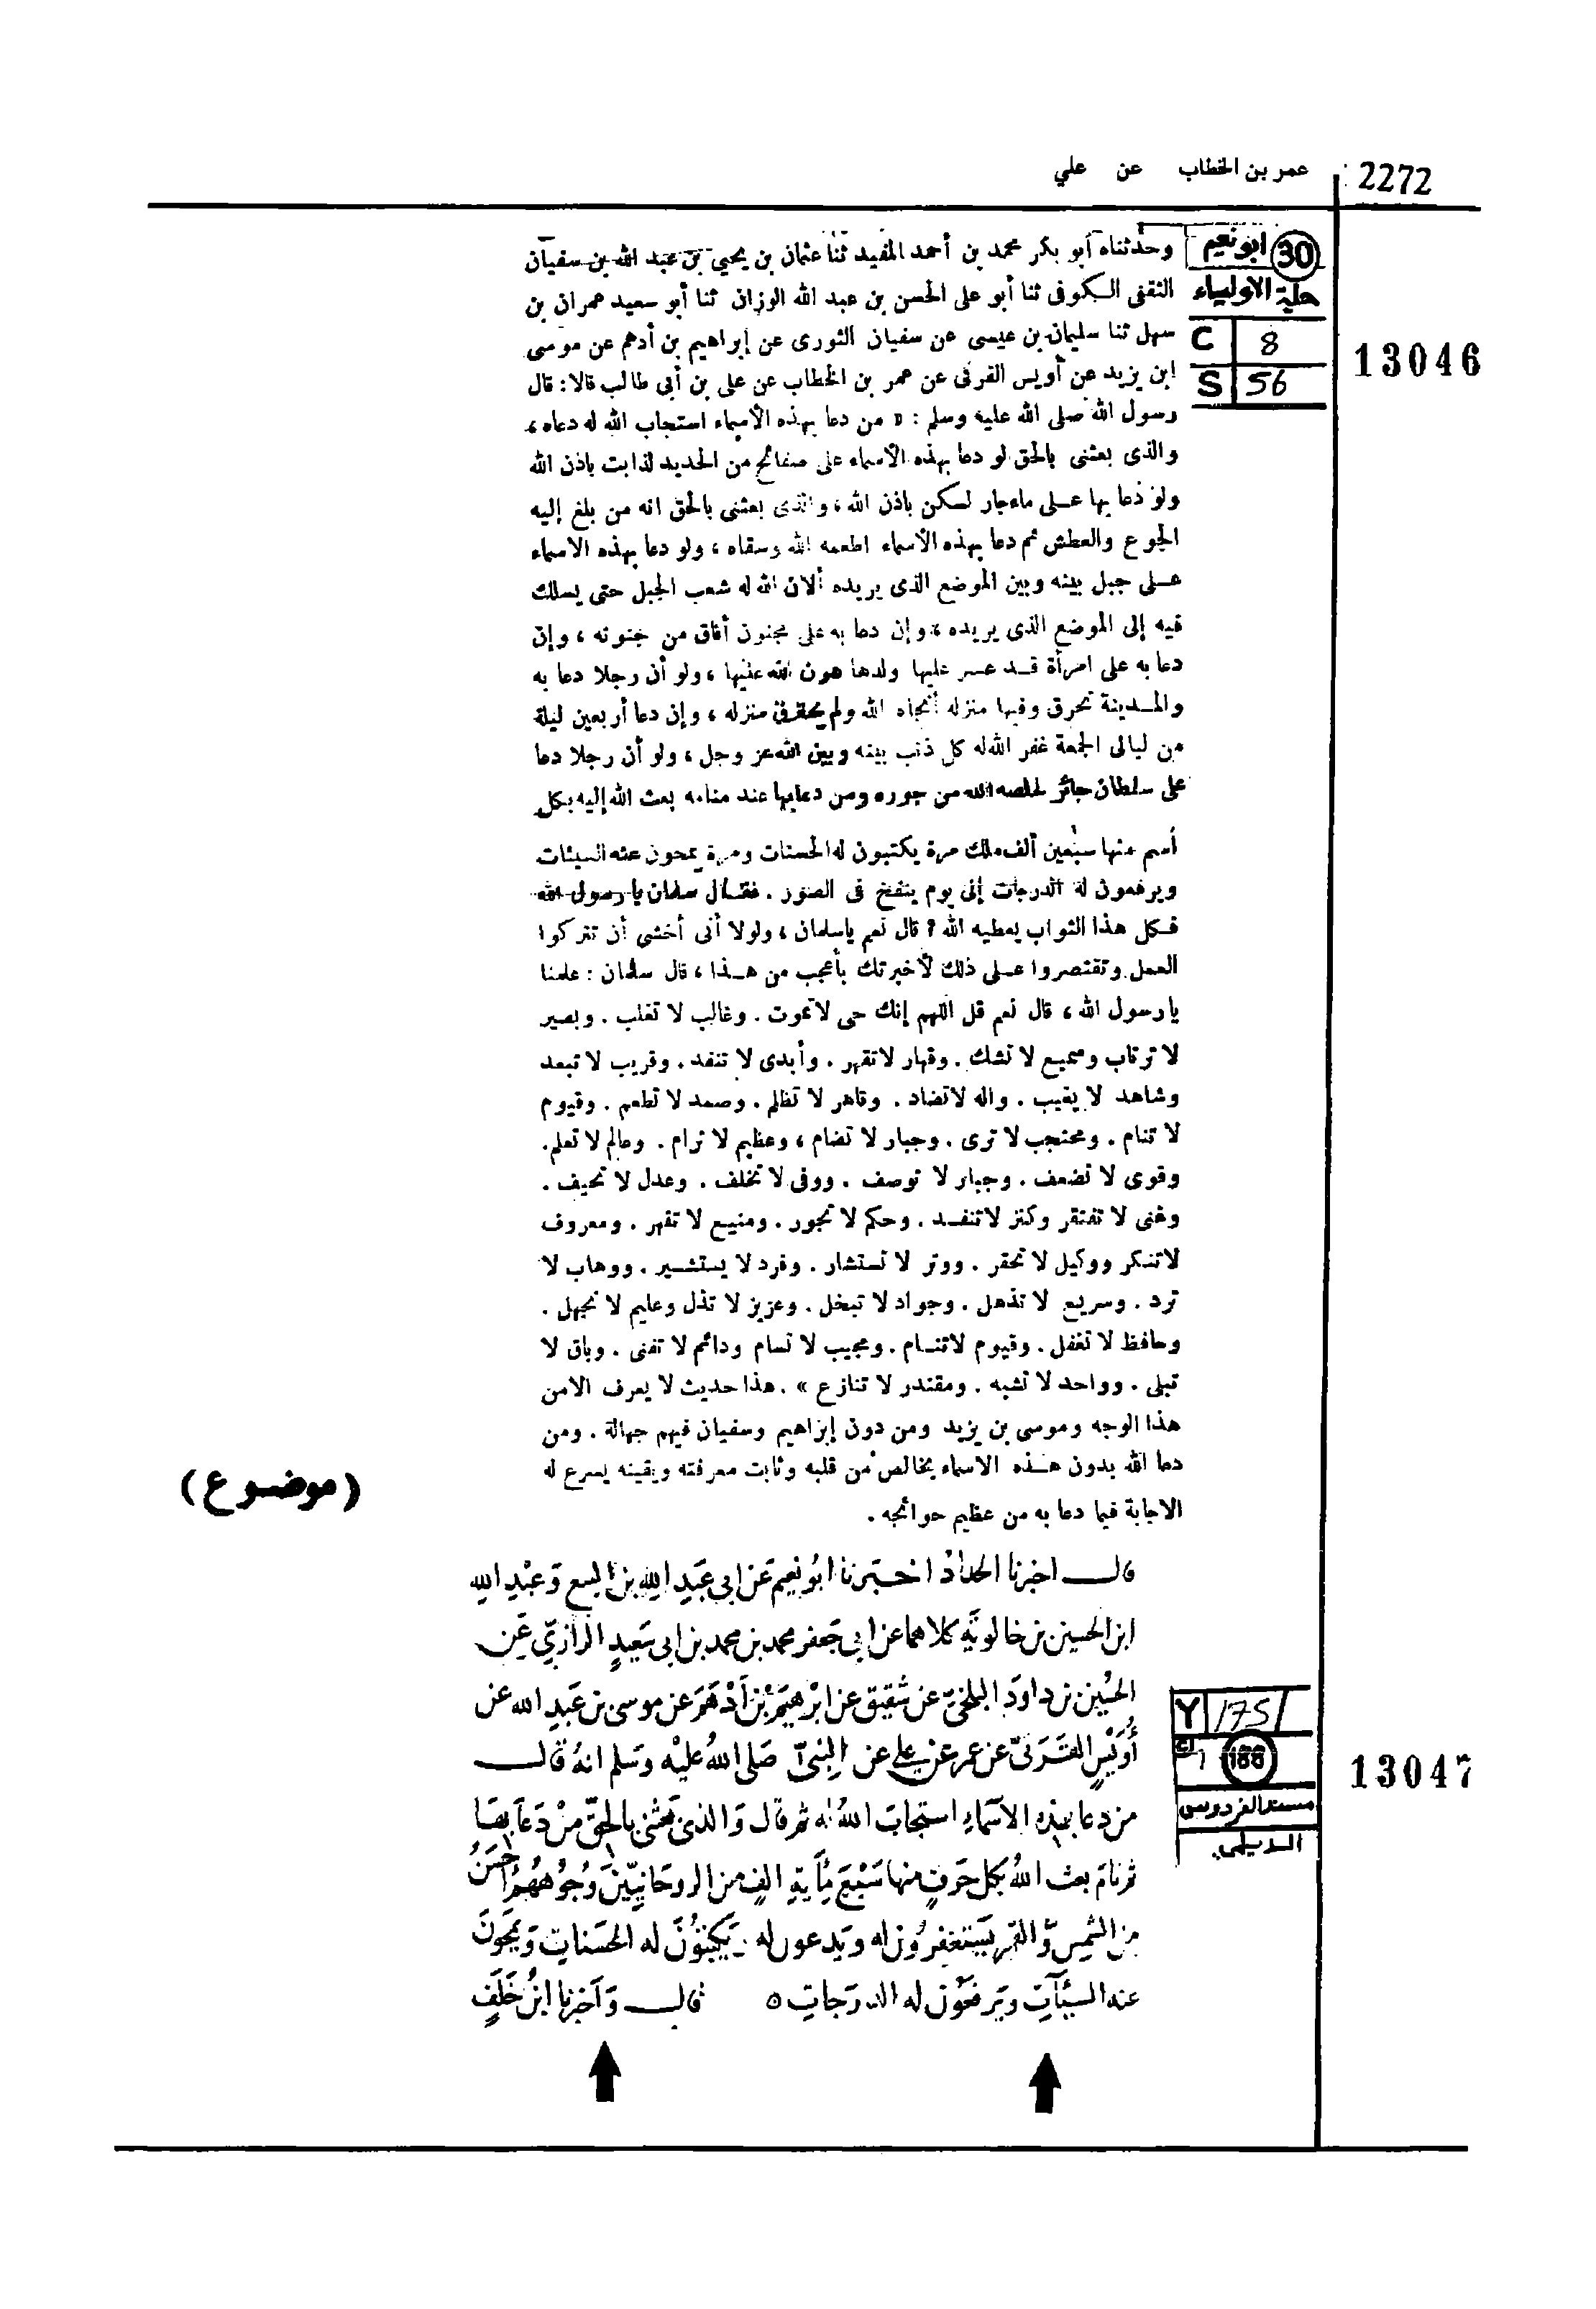 2272
عمر بن الخطاب عن علي
30 ابو نعيم
حلية الاولياء
C 8
S 56
13046
وحدثناه أبو بكر محمد بن أحمد المفيد ثنا عثمان بن يحيى بن عبد الله بن سفيان
الثقفى الكوفى ثنا أبو على الحسن بن عبد الله الوزان ثنا أبو سعيد عمران بن
سهل ثنا سليمان بن عيسى عن سفيان الثورى عن إبراهيم بن أدهم عن موسى
ابن يزيد عن أويس القرنى عن عمر بن الخطاب عن على بن أبى طالب قالا : قال
رسول الله صلى الله عليه وسلم : « من دعا بهذه الأسماء استجاب الله له دعاه ،
والذى بعثنى بالحق لو دعا بهذه الأسماء على صفائح من الحديد لذابت باذن الله
ولو دعا بها على ماء جار لسكن باذن الله ، والذى بعثنى بالحق انه من بلغ إليه
الجوع والعطش ثم دعا بهذه الأسماء اطعمه الله وسقاه ، ولو دعا بهذه الاسماء
على جبل بينه وبين الموضع الذى يريده ألان الله له شعب الجبل حتى يسلك
فيه إلى الموضع الذى يريده ، وإن دعا به على مجنون أفاق من جنونه ، وإن
دعا به على امرأة قد عسر عليها ولدها هون الله عليها ، ولو أن رجلا دعا به
والمدينة تحرق وفيها منزله أنجاه الله ولم يحترق منزله ، وإن دعا أربعين ليلة
من ليالى الجمعة غفر الله له كل ذنب بينه وبين الله عز وجل ، ولو أن رجلا دعا
على سلطان جائر لخلصه الله من جوره ومن دعا بها عند منامه بعث الله إليه بكل
أسم منها سبعين ألف ملك مرة يكتبون له الحسنات ومرة يمحون عنه السيئات
ويرفعون له الدرجات إلى يوم ينفخ فى الصور . فقال سلمان يا رسول الله
فكل هذا الثواب يعطيه الله ؟ قال نعم يا سلمان ، ولولا أنى أخشى أن تتركوا
العمل وتقتصروا على ذلك لأخبرتك بأعجب من هذا ، قال سلمان : علمنا
يا رسول الله ، قال نعم قل اللهم إنك حى لا تموت . وغالب لا تغلب . وبصير
لا ترتاب وسميع لا تشك . وقهار لا تقهر . وأبدى لا تنفد . وقريب لا تبعد
وشاهد لا يغيب . واله لا تضاد . وقاهر لا تظلم . وصمد لا تطعم . وقيوم
لا تنام . ومحتجب لا ترى . وجبار لا تضام ، وعظيم لا ترام . وعالم لا تعلم .
وقوى لا تضعف . وجبار لا توصف . ووفى لا تخلف . وعدل لا تحيف .
وغنى لا تفتقر وكنز لا تنفد . وحكم لا تجور . ومنيع لا تقهر . ومعروف
لا تنكر ووكيل لا تحقر . ووتر لا تستشار . وفرد لا يستشير . ووهاب لا
ترد . وسريع لا تذهل . وجواد لا تبخل . وعزيز لا تذل وعليم لا تجهل .
وحافظ لا تغفل . وقيوم لا تنام . ومجيب لا تسام ودائم لا تفنى . وباق لا
تبلى . وواحد لا تشبه . ومقتدر لا تنازع » . هذا حديث لا يعرف الا من
هذا الوجه وموسى بن يزيد ومن دون إبراهيم وسفيان فيهم جهالة . ومن
دعا الله بدون هذه الاسماء بخالص من قلبه وثابت معرفته ويقينه يسرع له
الاجابة فيما دعا به من عظيم حوائجه .
(موضوع)
قال اخبرنا الحداد اخبرنا ابو نعيم عن ابي عبد الله بن اليسع وعبد الله
ابن الحسين بن خالويه كلاهما عن ابي جعفر محمد بن محمد بن ابي سعيد الرازي عن
الحسين بن داود البلخي عن شقيق عن ابرهيم بن أدهم عن موسى بن عبد الله عن
أويس القرني عن عمر عن علي عن النبي صلى الله عليه وسلم انه قال
من دعا بهذه الاسماء استجاب الله له ثم قال والذي بعثني بالحق من دعا بها
ثم نام بعث الله بكل حرف منها سبع مأية الف من الروحانيين وجوههم احسن
من الشمس والقمر يستغفرون له ويدعون له ويكتبون له الحسنات ويمحون
عنه السيئات ويرفعون له الدرجات ٥ قال واخبرنا ابن خلف
Y 1751
188
مسند الفردوس
الديلمي
13047